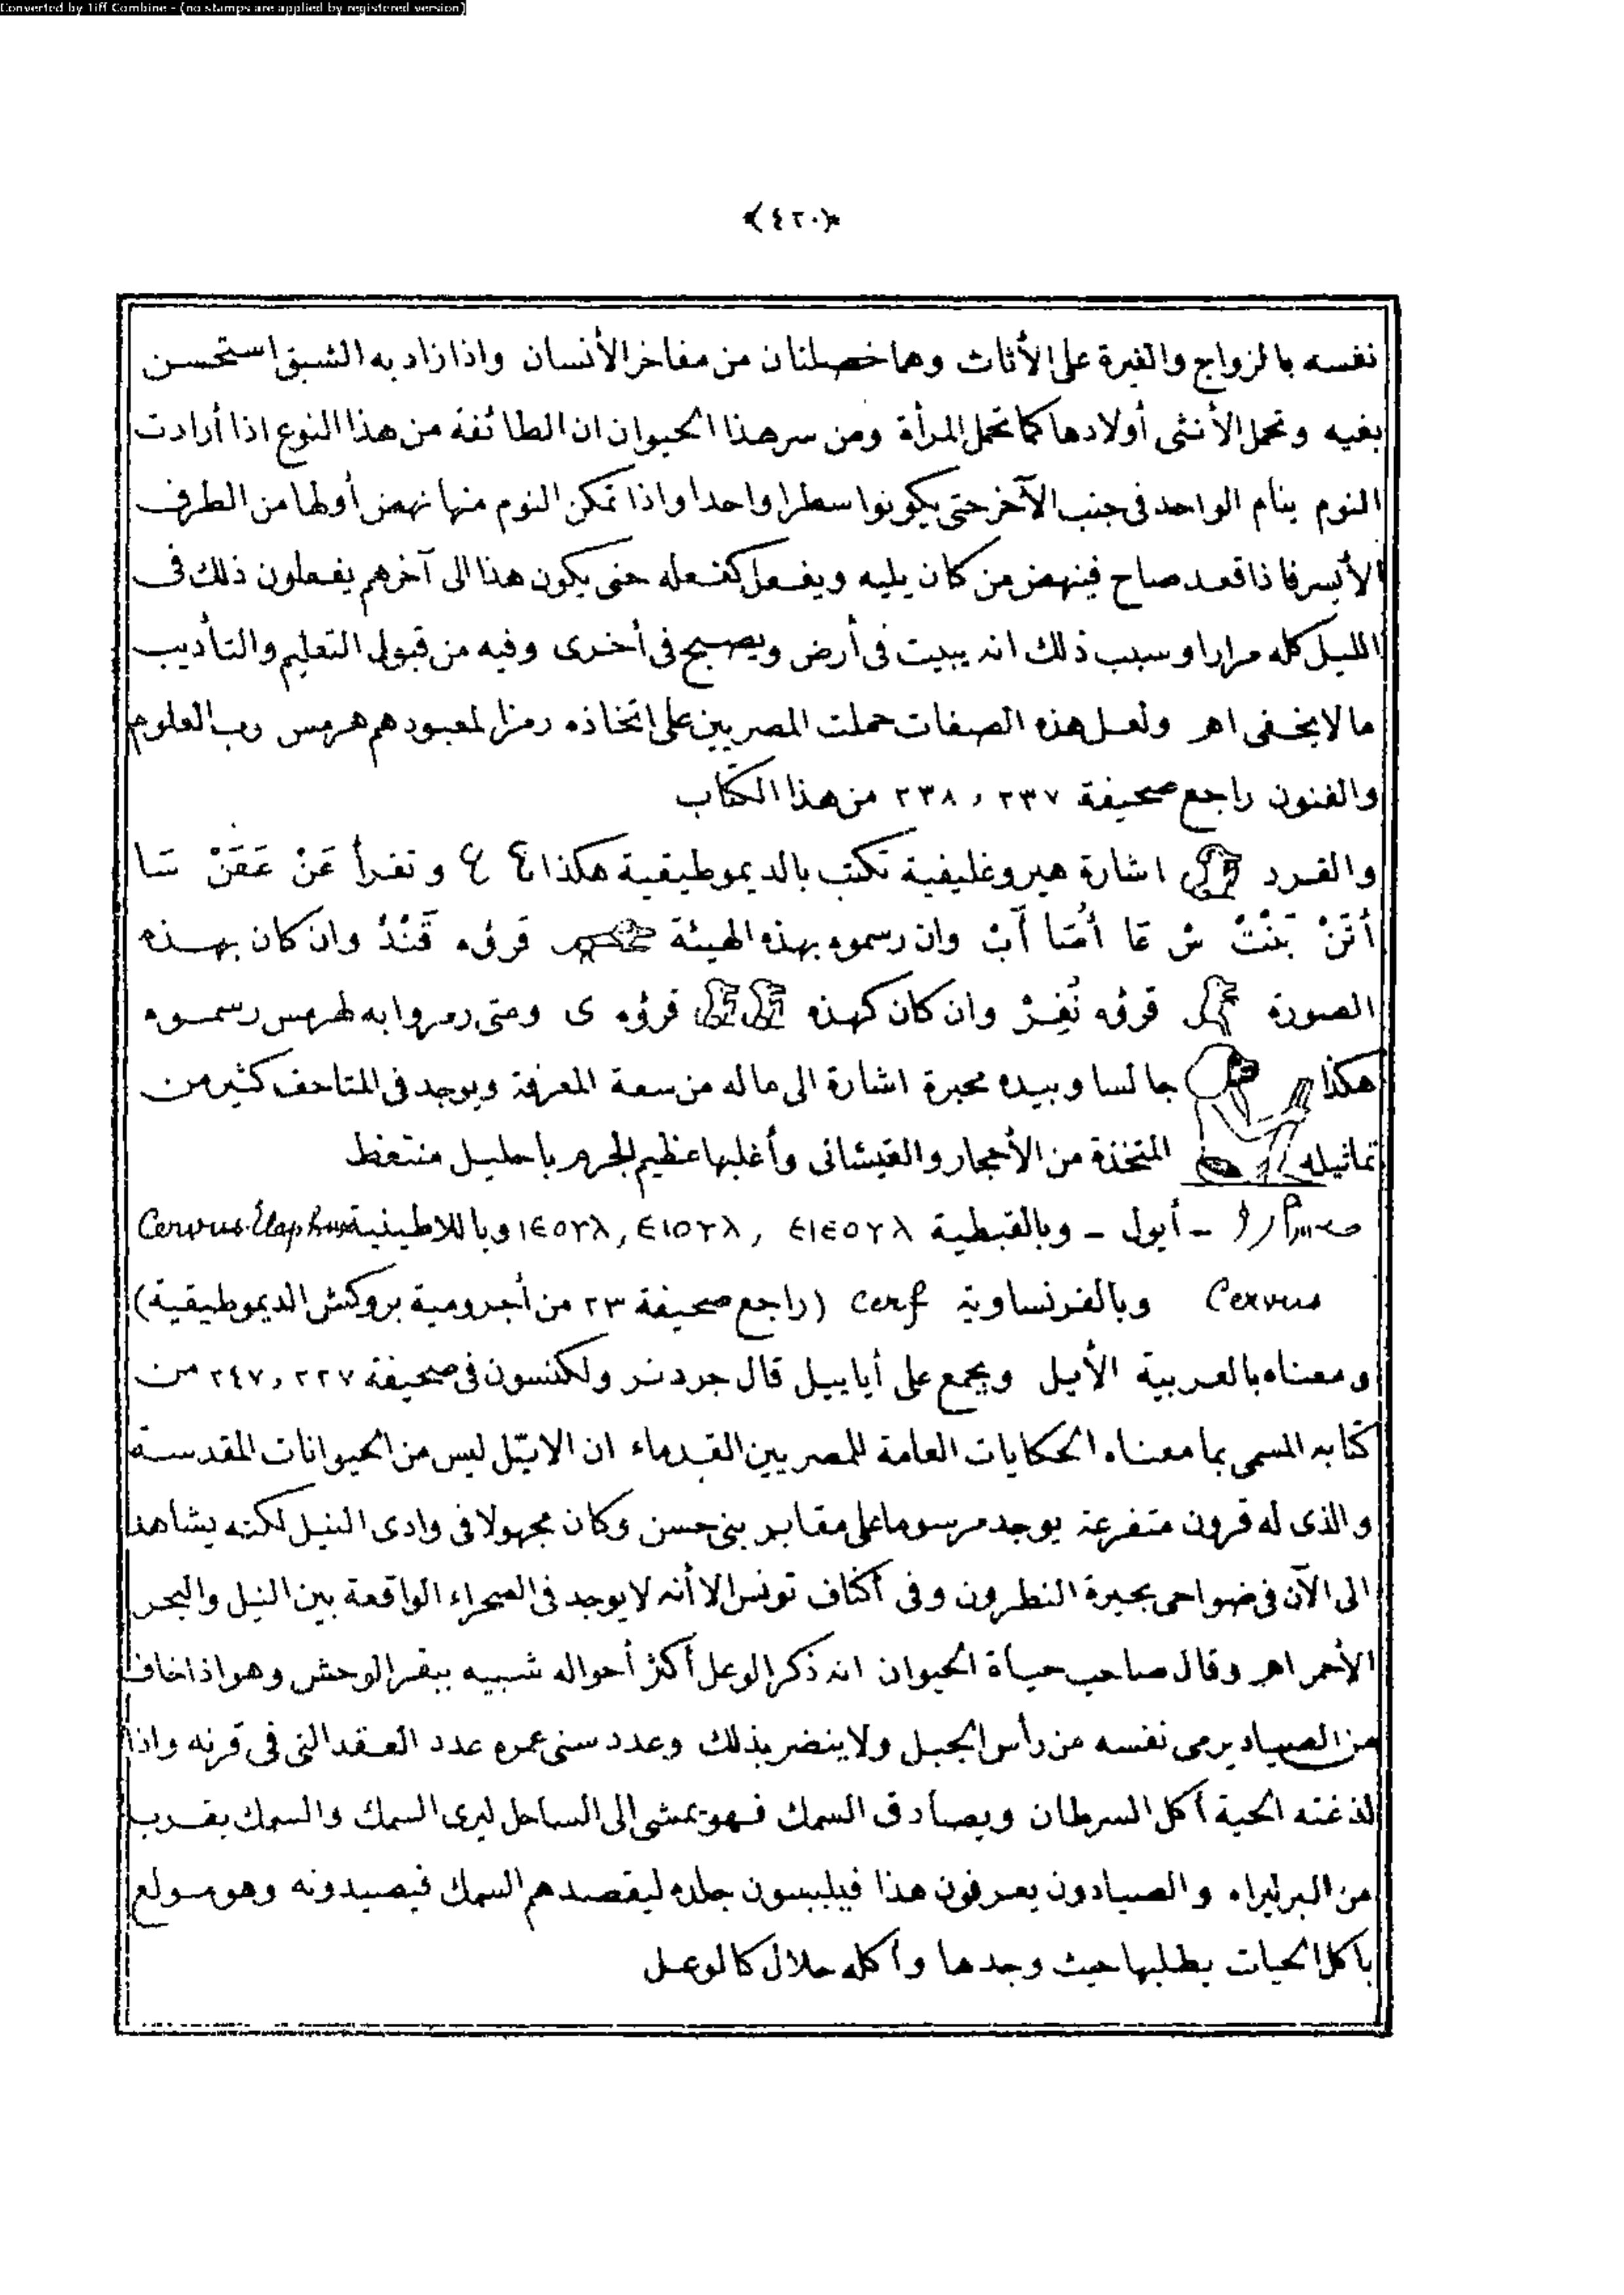 Converted by Tiff Combine - (no stamps are applied by registered version)
﴿٤٢٠﴾
نفسه بالزواج والغيرة على الأناث وهما خصلتان من مفاخر الأنسان واذا زاد به الشبق استحسن
بفيه وتحمل الأنثى أولادها كما تحمل المرأة ومن سر هذا الحيوان ان الطائفة من هذا النوع اذا أرادت
النوم ينام الواحد فى جنب الآخر حتى يكونوا سطرا واحدا واذا تمكن النوم منها نهض أولها من الطرف
الأيسر فاذا قعد صاح فينهض من كان يليه ويفعل كفعله حتى يكون هذا الى آخرهم يفعلون ذلك فى
الليل كله مرارا وسبب ذلك انه يبيت فى أرض ويصبح فى أخرى وفيه من قبول التعليم والتأديب
ما لا يخفى اهـ ولعل هذه الصفات حملت المصريين على اتخاذه رمزا لمعبودهم هرمس رب العلوم
والفنون راجع صحيفة ٢٣٧ , ٢٣٨ من هذا الكتاب
والقرد اشارة هيروغليفية تكتب بالديموطيقية هكذا وتقرأ عَنْ عَقَنْ سَا
أَتَنْ بَنْتْ ش عَا أُمَتَا آبْ وان رسموه بهذه الهيئة قرؤه قَنْدْ وان كان بهذه
الصورة قرؤه نُفِرْ وان كان كهذه قرؤه ى ومتى رمزوا به لهرمس رسموه
هكذا جالسا وبيده محبرة اشارة الى ماله من سعة المعرفة ويوجد فى المتاحف كثير من
تماثيله المتخذة من الأحجار والقيشانى وأغلبها عظيم الجرم باحليل منتعظ
ـ أيول ـ وبالقبطية ⲉⲓⲉⲟⲩⲗ , ⲉⲓⲟⲩⲗ , ⲓⲉⲟⲩⲗ وباللاطينية Cervus Elaphus
Cervus وبالفرنساوية Cerf (راجع صحيفة ٢٣ من أجرومية بروكش الديموطيقية)
ومعناه بالعربية الأيل ويجمع على أياييل قال جردنر ولكنسون فى صحيفة ٢٢٧ , ٢٤٧ من
كتابه المسمى بما معناه الحكايات العامة للمصريين القدماء ان الايّل ليس من الحيوانات المقدسة
والذى له قرون متفرعة يوجد مرسوما على مقابر بنى حسن وكان مجهولا فى وادى النيل لكنه يشاهد
الى الآن فى ضواحى بحيرة النطرون وفى أكناف تونس الا أنه لا يوجد فى الصحراء الواقعة بين النيل والبحر
الأحمر اهـ وقال صاحب حياة الحيوان انه ذكر الوعل أكثر أحواله شبيه ببقر الوحش وهو اذا خاف
من الصياد يرمى نفسه من رأس الجبل ولا ينضر بذلك وعدد سنى عمره عدد العقد التى فى قرنه واذا
لذغته الحية أكل السرطان ويصادق السمك فهو يمشى الى الساحل ليرى السمك والسمك يقرب
من البر ليراه والصيادون يعرفون هذا فيلبسون جلده ليقصدهم السمك فيصيدونه وهو مولع
بأكل الحيات يطلبها حيث وجدها وأكله حلال كالوعل